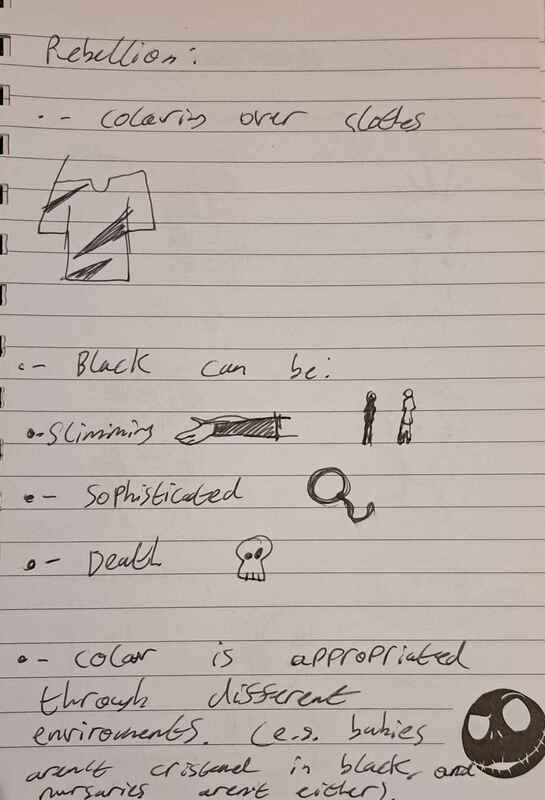 Rebellion:
- coloring over clothes
- Black can be:
- Slimming
- Sophisticated
- Death
- color is appropriated
through different
enviroments. (e.g. babies
arent cristened in black, and
nursaries arent either).